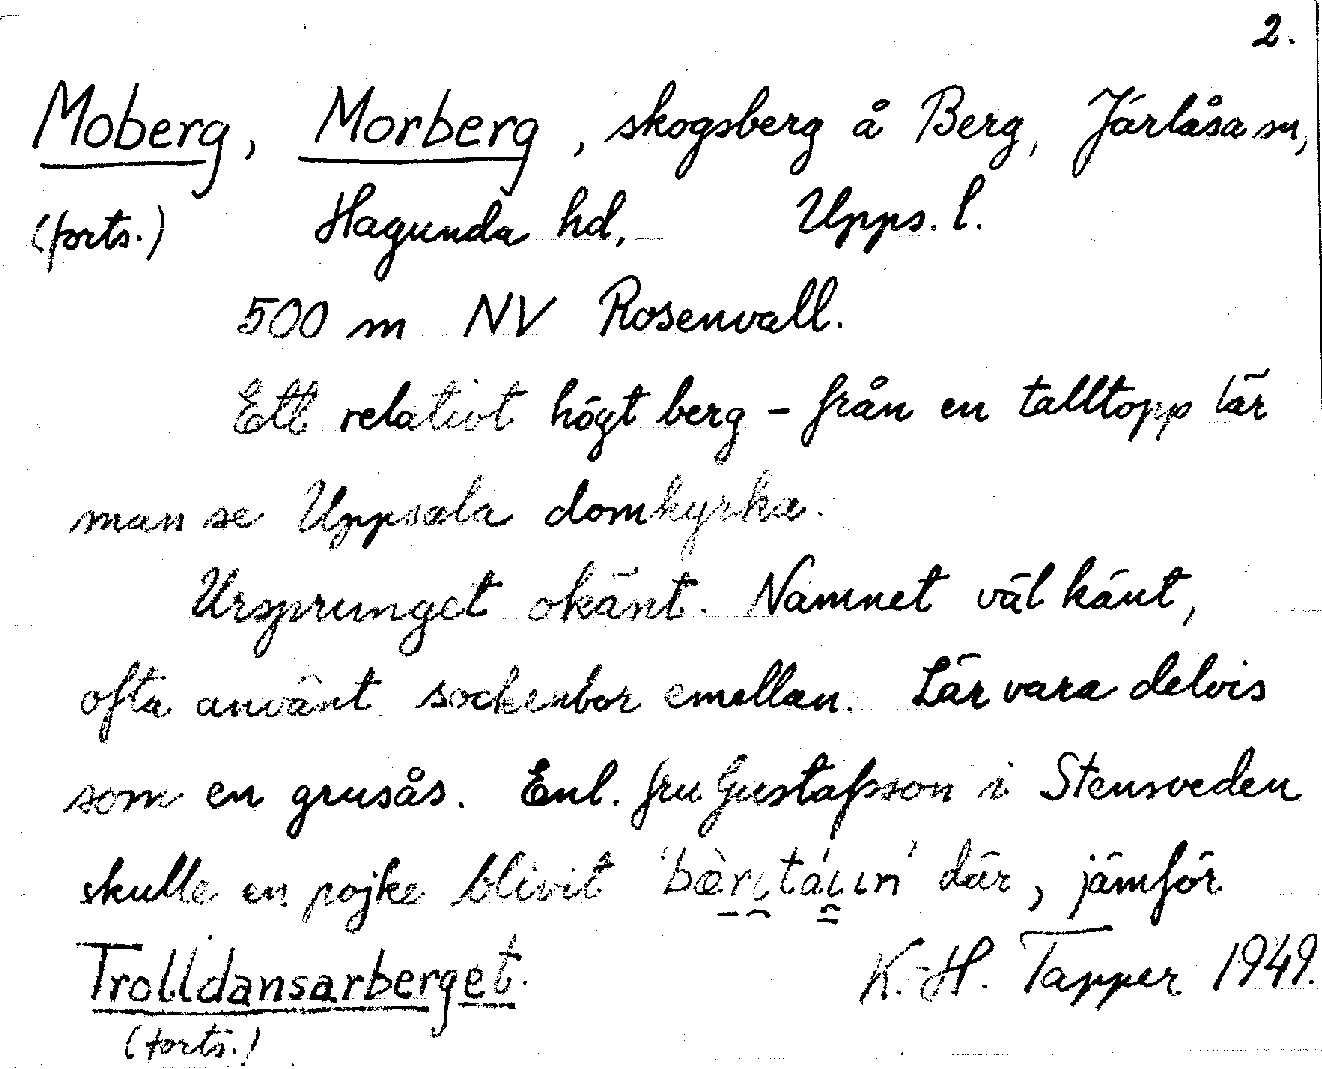 2.
Moberg, Morberg, skogsberg å Berg, Järlåsa sn,
(forts.) Hagunda hd, Upps. l.
500 m NV Rosenvall.
Ett relativt högt berg - från en talltopp lär
man se Uppsala domkyrka.
Ursprunget okänt. Namnet väl känt,
ofta använt sockenbor emellan. Lär vara delvis
som en grusås. Enl. fru Gustafsson i Stensveden
skulle en pojke blivit där, jämför
Trolldansarberget. K.-H. Tapper 1949.
(forts.)